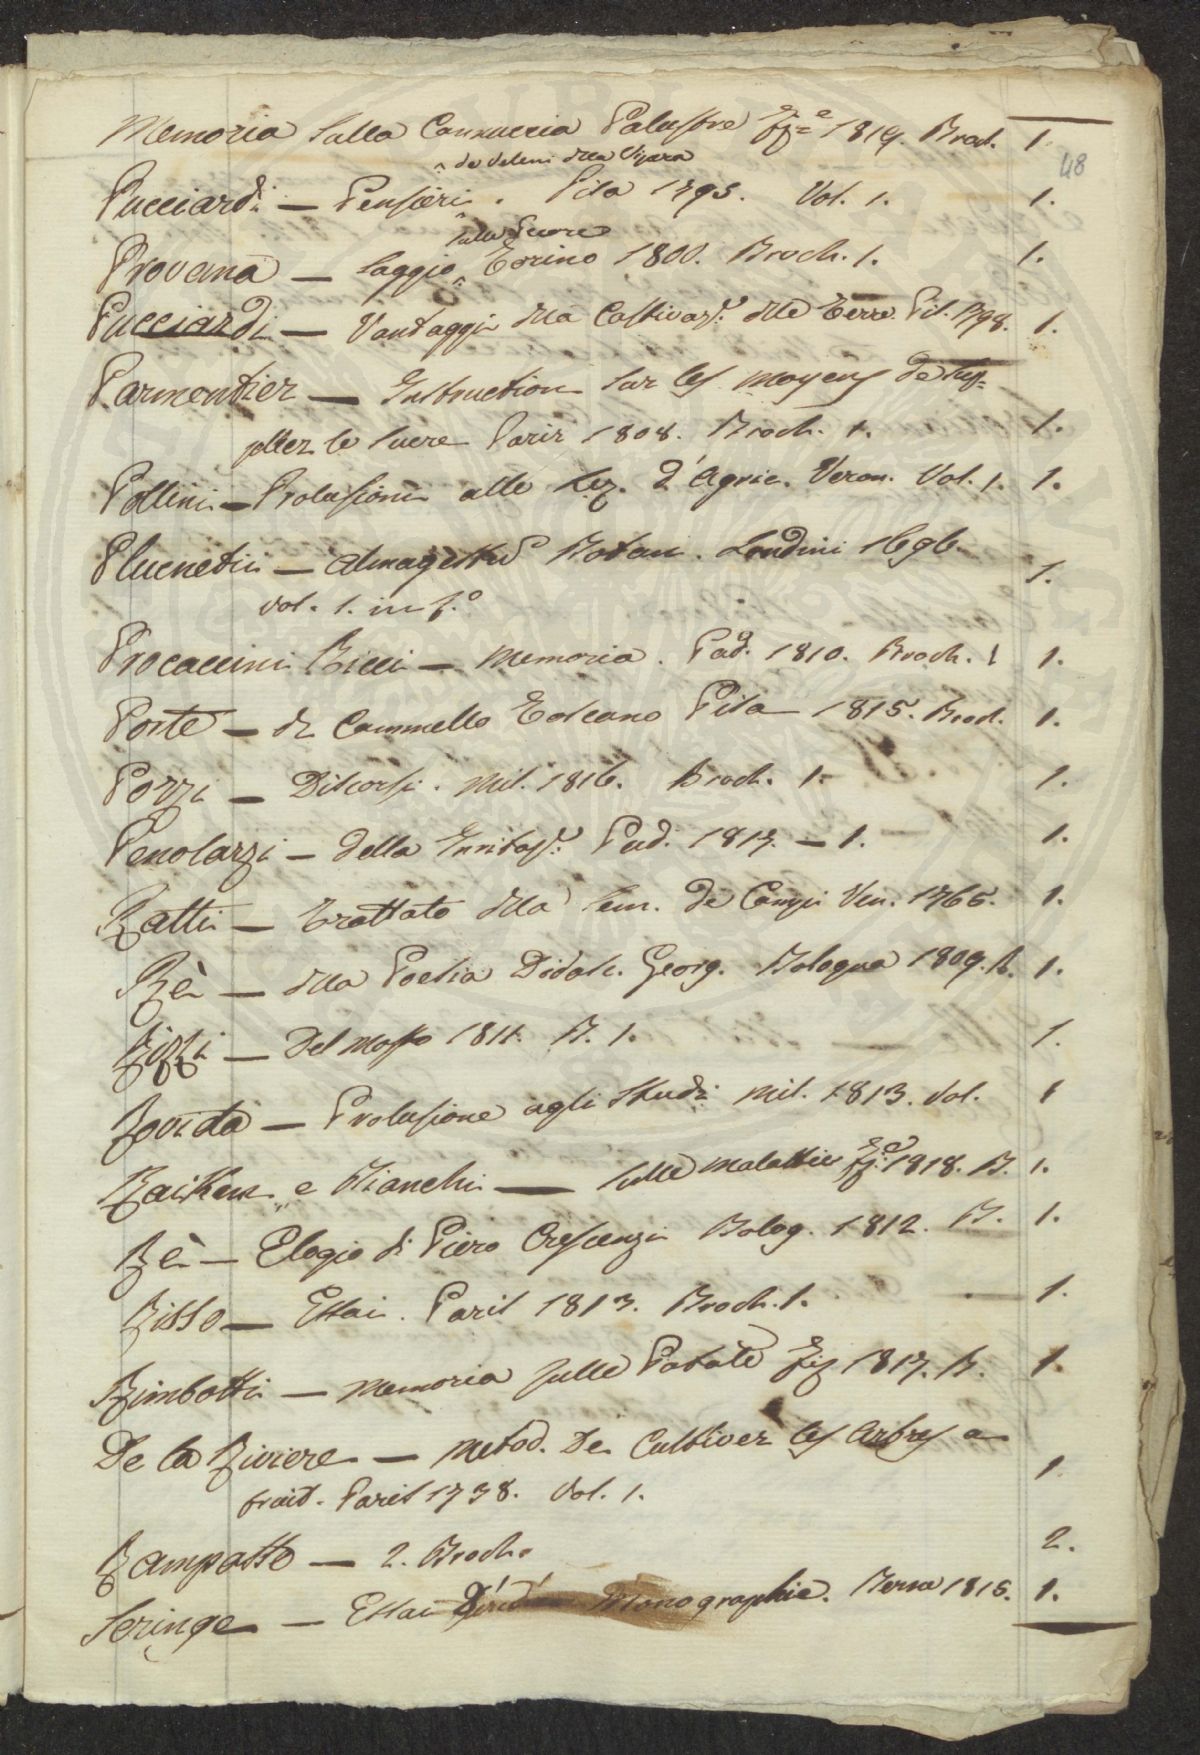 Memoria sulla Cannuccia Palustre 1819. Broch. 1.
48
da Veleni della Vipera
Pucciardi — Pensieri . Pisa 1795. Vol. 1. 1.
sulle Pecore
Provana — Saggio Torino 1800. Broch. 1. 1.
Pucciardi — Vantaggi della Coltivaz.e delle Terre Pis. 1798. 1.
Parmentier — Instruction sur les moyens de sup=
pléer le sucre Paris 1808. Broch. 1. 1.
Pollini — Prolusioni alle Lez. d'Agric. Veron. Vol. 1. 1.
Pluenetii — Almagestu Botani. Londini 1696.
vol. 1. in f.o 1.
Procaccini Ricci — Memoria . Pad. 1810. Broch. 1 1.
Porte — du Cammello Toscano Pisa 1815. Broch. 1.
Pozzi — Discorsi . Mil. 1816. Broch. 1. 1.
Penolazzi — della Irritaz.e Pad. 1817. — 1. 1.
Ratti — Trattato della Sem. de Campi Ven. 1765. 1.
Rè — della Poesia Didasc. Georg. Bologna 1809. B. 1.
Rizzi — Del mosto 1811. B. 1. 1.
Rovida — Prolusione agli Studi Mil. 1813. Vol. 1
Raikem e Bianchi — sulle malattie 1818. B. 1.
Rè — Elogio di Piero Crescenzi Bolog. 1812. B. 1.
Risso — Essai . Paris 1813. Broch. 1. 1.
Rimbotti — Memoria sulle Patate 1817. B. 1.
De la Riviere — Metod. De Cultiver les Arbres a
fruit . Paris 1738. Vol. 1. 1.
Rampasto — 2. Broch. 2.
Seringe — Essai Monographie. Berne 1815. 1.